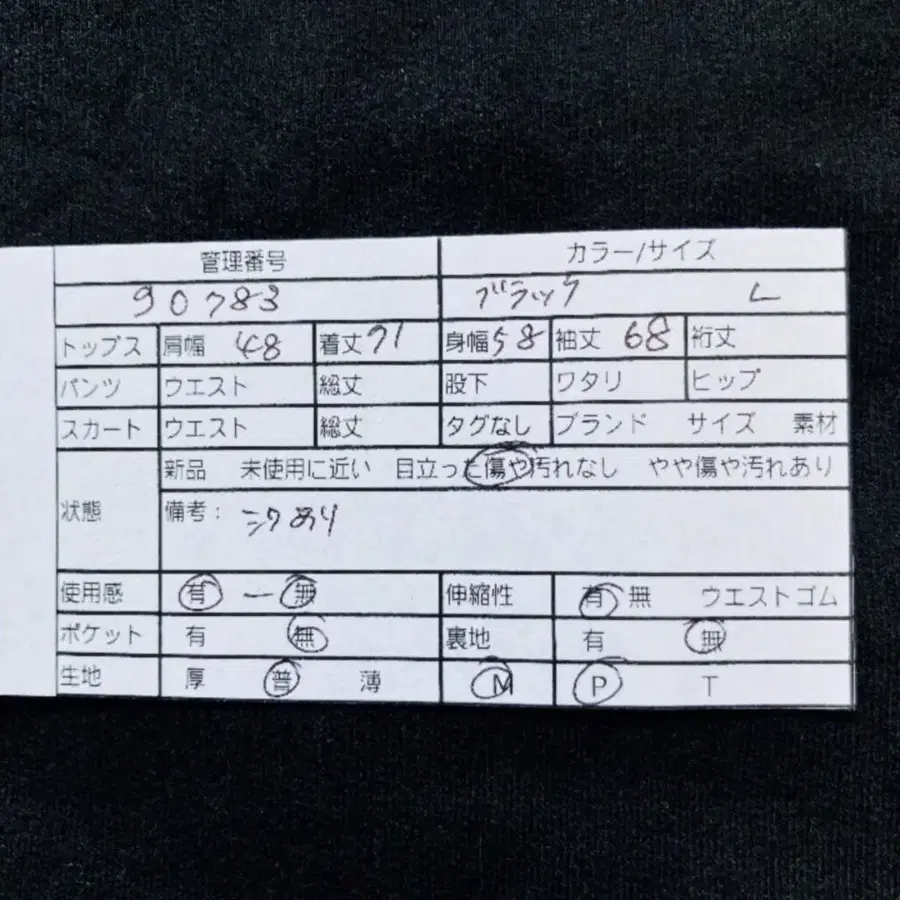 管理番号 カラー/サイズ
90783 ブラック L
トップス 肩幅 48 着丈 71 身幅 58 袖丈 68 裄丈
パンツ ウエスト 総丈 股下 ワタリ ヒップ
スカート ウエスト 総丈 タグなし ブランド サイズ 素材
状態 新品 未使用に近い 目立った傷や汚れなし やや傷や汚れあり
備考: シワあり
使用感 有 ー 無 伸縮性 有 無 ウエストゴム
ポケット 有 無 裏地 有 無
生地 厚 普 薄 M P T